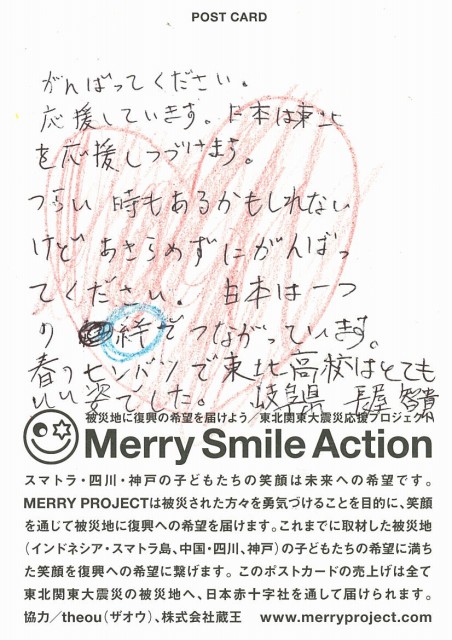 POST CARD
がんばってください。
応援しています。日本は東北
を応援しつづけまます。
つらい 時もあるかもしれない
けど あきらめずにがんばっ
てください。 日本は一つ
の 絆でつながっています。
春のセンバツで東北高校はとても
いい姿でした。 岐阜県 長屋 智貴
被災地に復興の希望を届けよう/東北関東大震災応援プロジェクト
Merry Smile Action
スマトラ・四川・神戸の子どもたちの笑顔は未来への希望です。
MERRY PROJECTは被災された方々を勇気づけることを目的に、笑顔
を通じて被災地に復興への希望を届けます。これまでに取材した被災地
(インドネシア・スマトラ島、中国・四川、神戸)の子どもたちの希望に満ち
た笑顔を復興への希望に繋げます。このポストカードの売上げは全て
東北関東大震災の被災地へ、日本赤十字社を通して届けられます。
協力/theou(ザオウ)、株式会社蔵王 www.merryproject.com